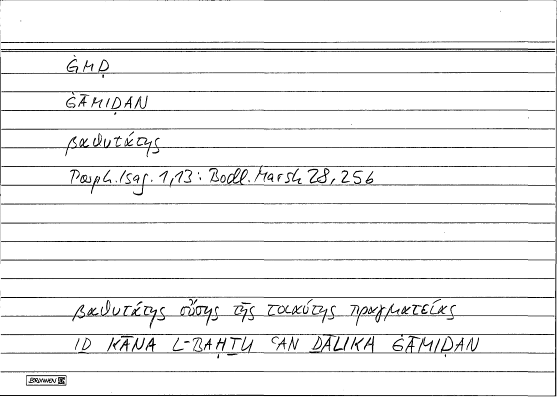 ĠMḌ
ĠĀMIḌAN
βαθυτάτης
Porph. Isag. 1,13: Bodl. Marsh 28, 256
βαθυτάτης οὔσης τῆς τοιαύτης πραγματείας
IḎ KĀNA L-BAḤṮU ʿAN ḎĀLIKA ĠĀMIḌAN
BRUNNEN